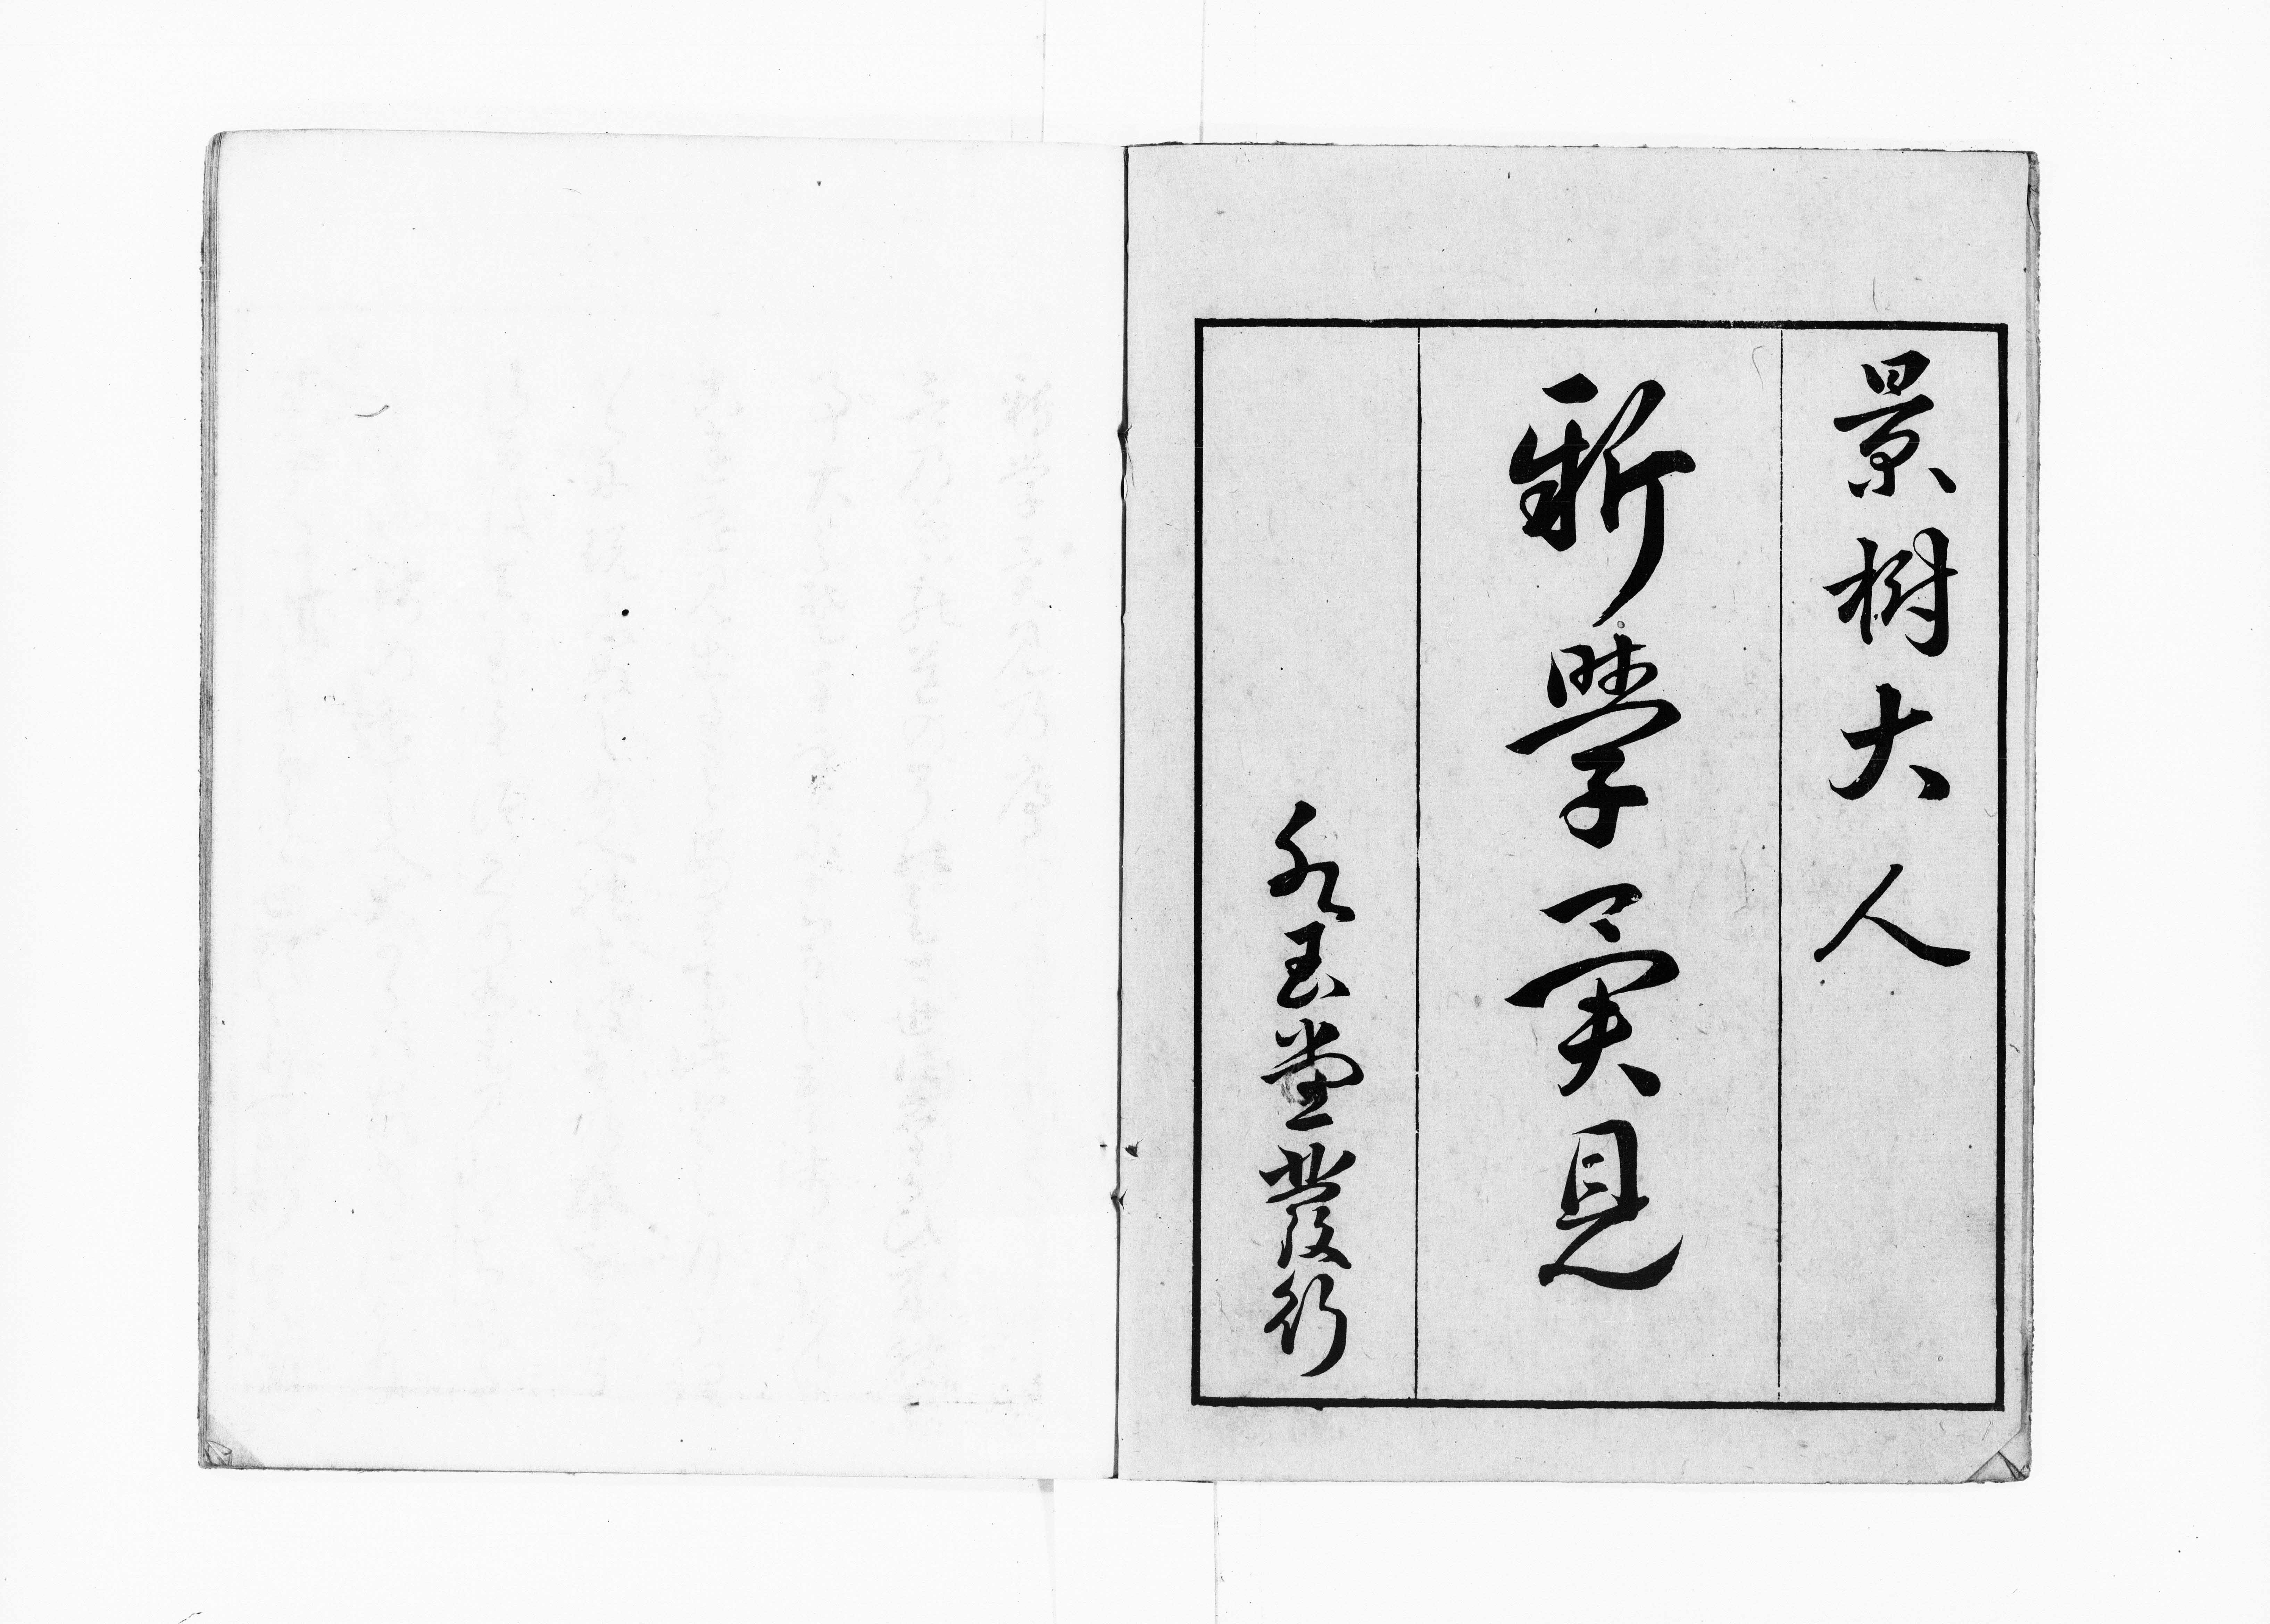 景樹大人
新學異見
永玉堂發行